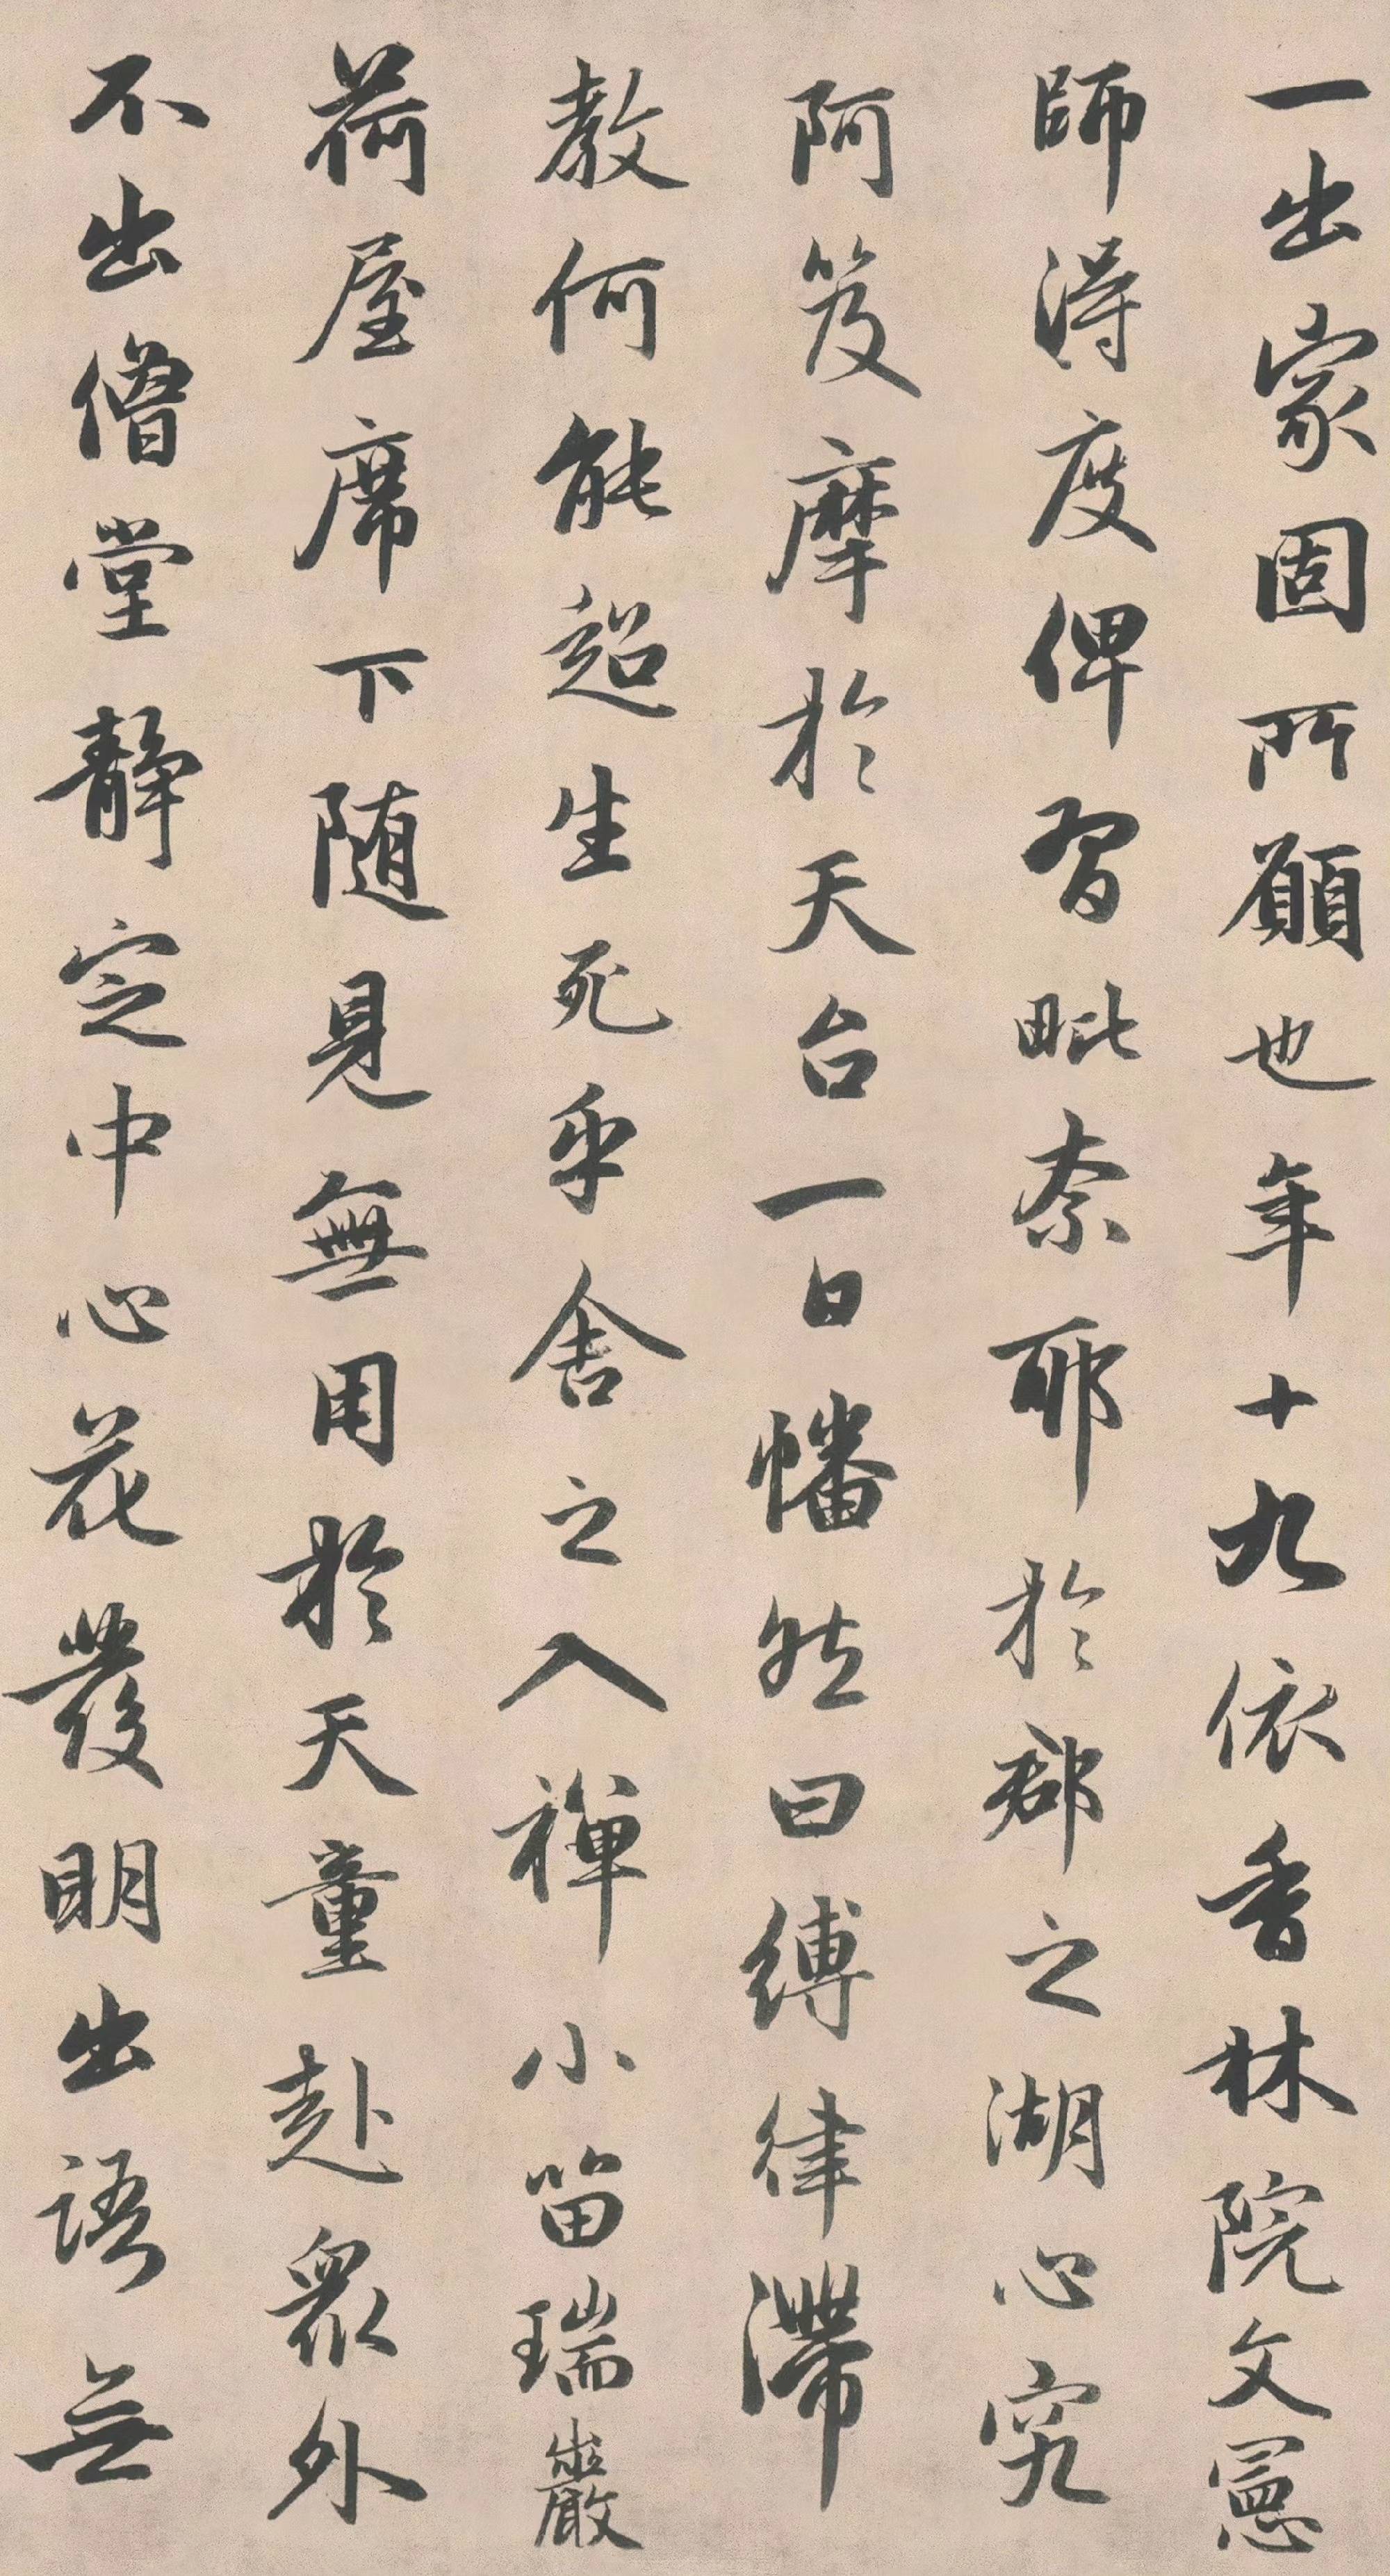 一出家固所願也年十九依香林院文憲
師得度俾習毗奈耶於郡之湖心究
阿笈摩於天台一日幡然曰縛律滯
教何能超生死乎舍之入禪小留瑞巖
荷屋席下随見無用於天童赴眾外
不出僧堂靜定中心花發明出語無